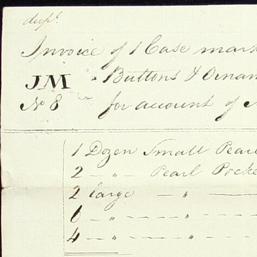 dupl.
Invoice of 1 Case mark
JM " Buttons & Ornam
No 8 for account of
1 Dozen Small Pear
2 - " - Pearl Pocke
2 large "
6 - " - "
4 - " - "